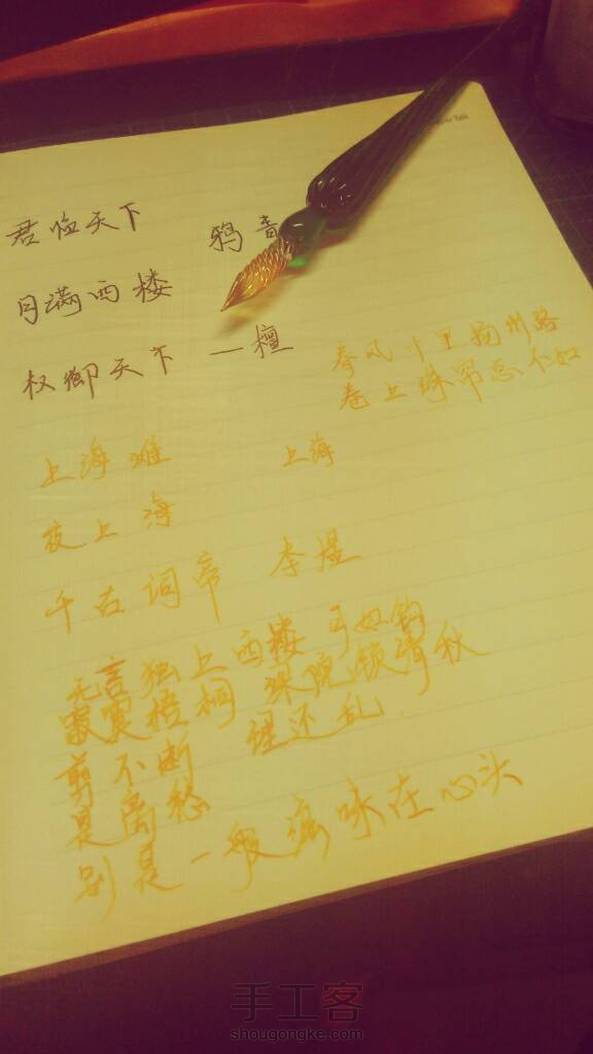 君临天下 鸦青
月满西楼
权御天下 一檀
春风十里扬州路
卷上珠帘总不如
上海滩 上海
夜上海
千古词帝 李煜
无言独上西楼 月如钩
寂寞梧桐 深院锁清秋
剪不断 理还乱
是离愁
别是一般滋味在心头
手工客
shougongke.com